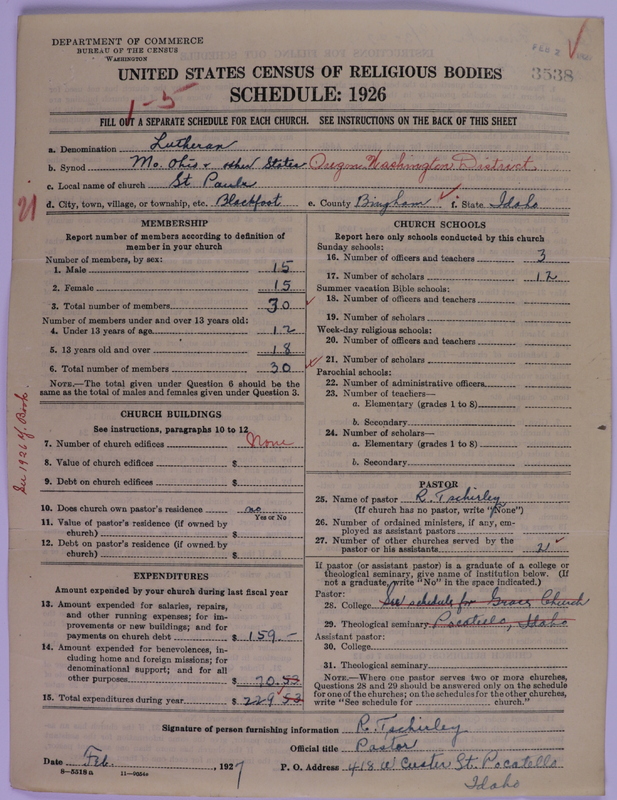 DEPARTMENT OF COMMERCE
BUREAU OF THE CENSUS
WASHINGTON
FEB 2
3538
UNITED STATES CENSUS OF RELIGIOUS BODIES
SCHEDULE: 1926
1-5
FILL OUT A SEPARATE SCHEDULE FOR EACH CHURCH. SEE INSTRUCTIONS ON THE BACK OF THIS SHEET
a. Denomination Lutheran
b. Synod Mo. Ohio & other States Oregon Washington District
c. Local name of church St Pauls
d. City, town, village, or township, etc. Blackfoot e. County Bingham f. State Idaho
21
MEMBERSHIP
Report number of members according to definition of
member in your church
Number of members, by sex:
1. Male 15
2. Female 15
3. Total number of members 30
Number of members under and over 13 years old:
4. Under 13 years of age 12
5. 13 years old and over 18
6. Total number of members 30
NOTE.—The total given under Question 6 should be the
same as the total of males and females given under Question 3.
CHURCH BUILDINGS
See instructions, paragraphs 10 to 12
7. Number of church edifices None
8. Value of church edifices $
9. Debt on church edifices $
10. Does church own pastor's residence no
Yes or No
11. Value of pastor's residence (if owned by
church) $
12. Debt on pastor's residence (if owned by
church) $
See 1926 Y. Book
EXPENDITURES
Amount expended by your church during last fiscal year
13. Amount expended for salaries, repairs,
and other running expenses; for im-
provements or new buildings; and for
payments on church debt $ 159.—
14. Amount expended for benevolences, in-
cluding home and foreign missions; for
denominational support; and for all
other purposes $ 70.53
15. Total expenditures during year $ 229 53
CHURCH SCHOOLS
Report here only schools conducted by this church
Sunday schools:
16. Number of officers and teachers 3
17. Number of scholars 12
Summer vacation Bible schools:
18. Number of officers and teachers
19. Number of scholars
Week-day religious schools:
20. Number of officers and teachers
21. Number of scholars
Parochial schools:
22. Number of administrative officers
23. Number of teachers—
a. Elementary (grades 1 to 8)
b. Secondary
24. Number of scholars—
a. Elementary (grades 1 to 8)
b. Secondary
PASTOR
25. Name of pastor R. Tschirley
(If church has no pastor, write "None")
26. Number of ordained ministers, if any, em-
ployed as assistant pastors
27. Number of other churches served by the
pastor or his assistants 2
If pastor (or assistant pastor) is a graduate of a college or
theological seminary, give name of institution below. (If
not a graduate, write "No" in the space indicated.)
Pastor:
28. College See schedule for Grace Church
29. Theological seminary Pocatello, Idaho
Assistant pastor:
30. College
31. Theological seminary
NOTE.—Where one pastor serves two or more churches,
Questions 28 and 29 should be answered only on the schedule
for one of the churches; on the schedules for the other churches,
write "See schedule for church."
Signature of person furnishing information R. Tschirley
Official title Pastor
Date Feb. , 1927 P. O. Address 418 W Custer St. Pocatello
Idaho
8-5518a 11-9054